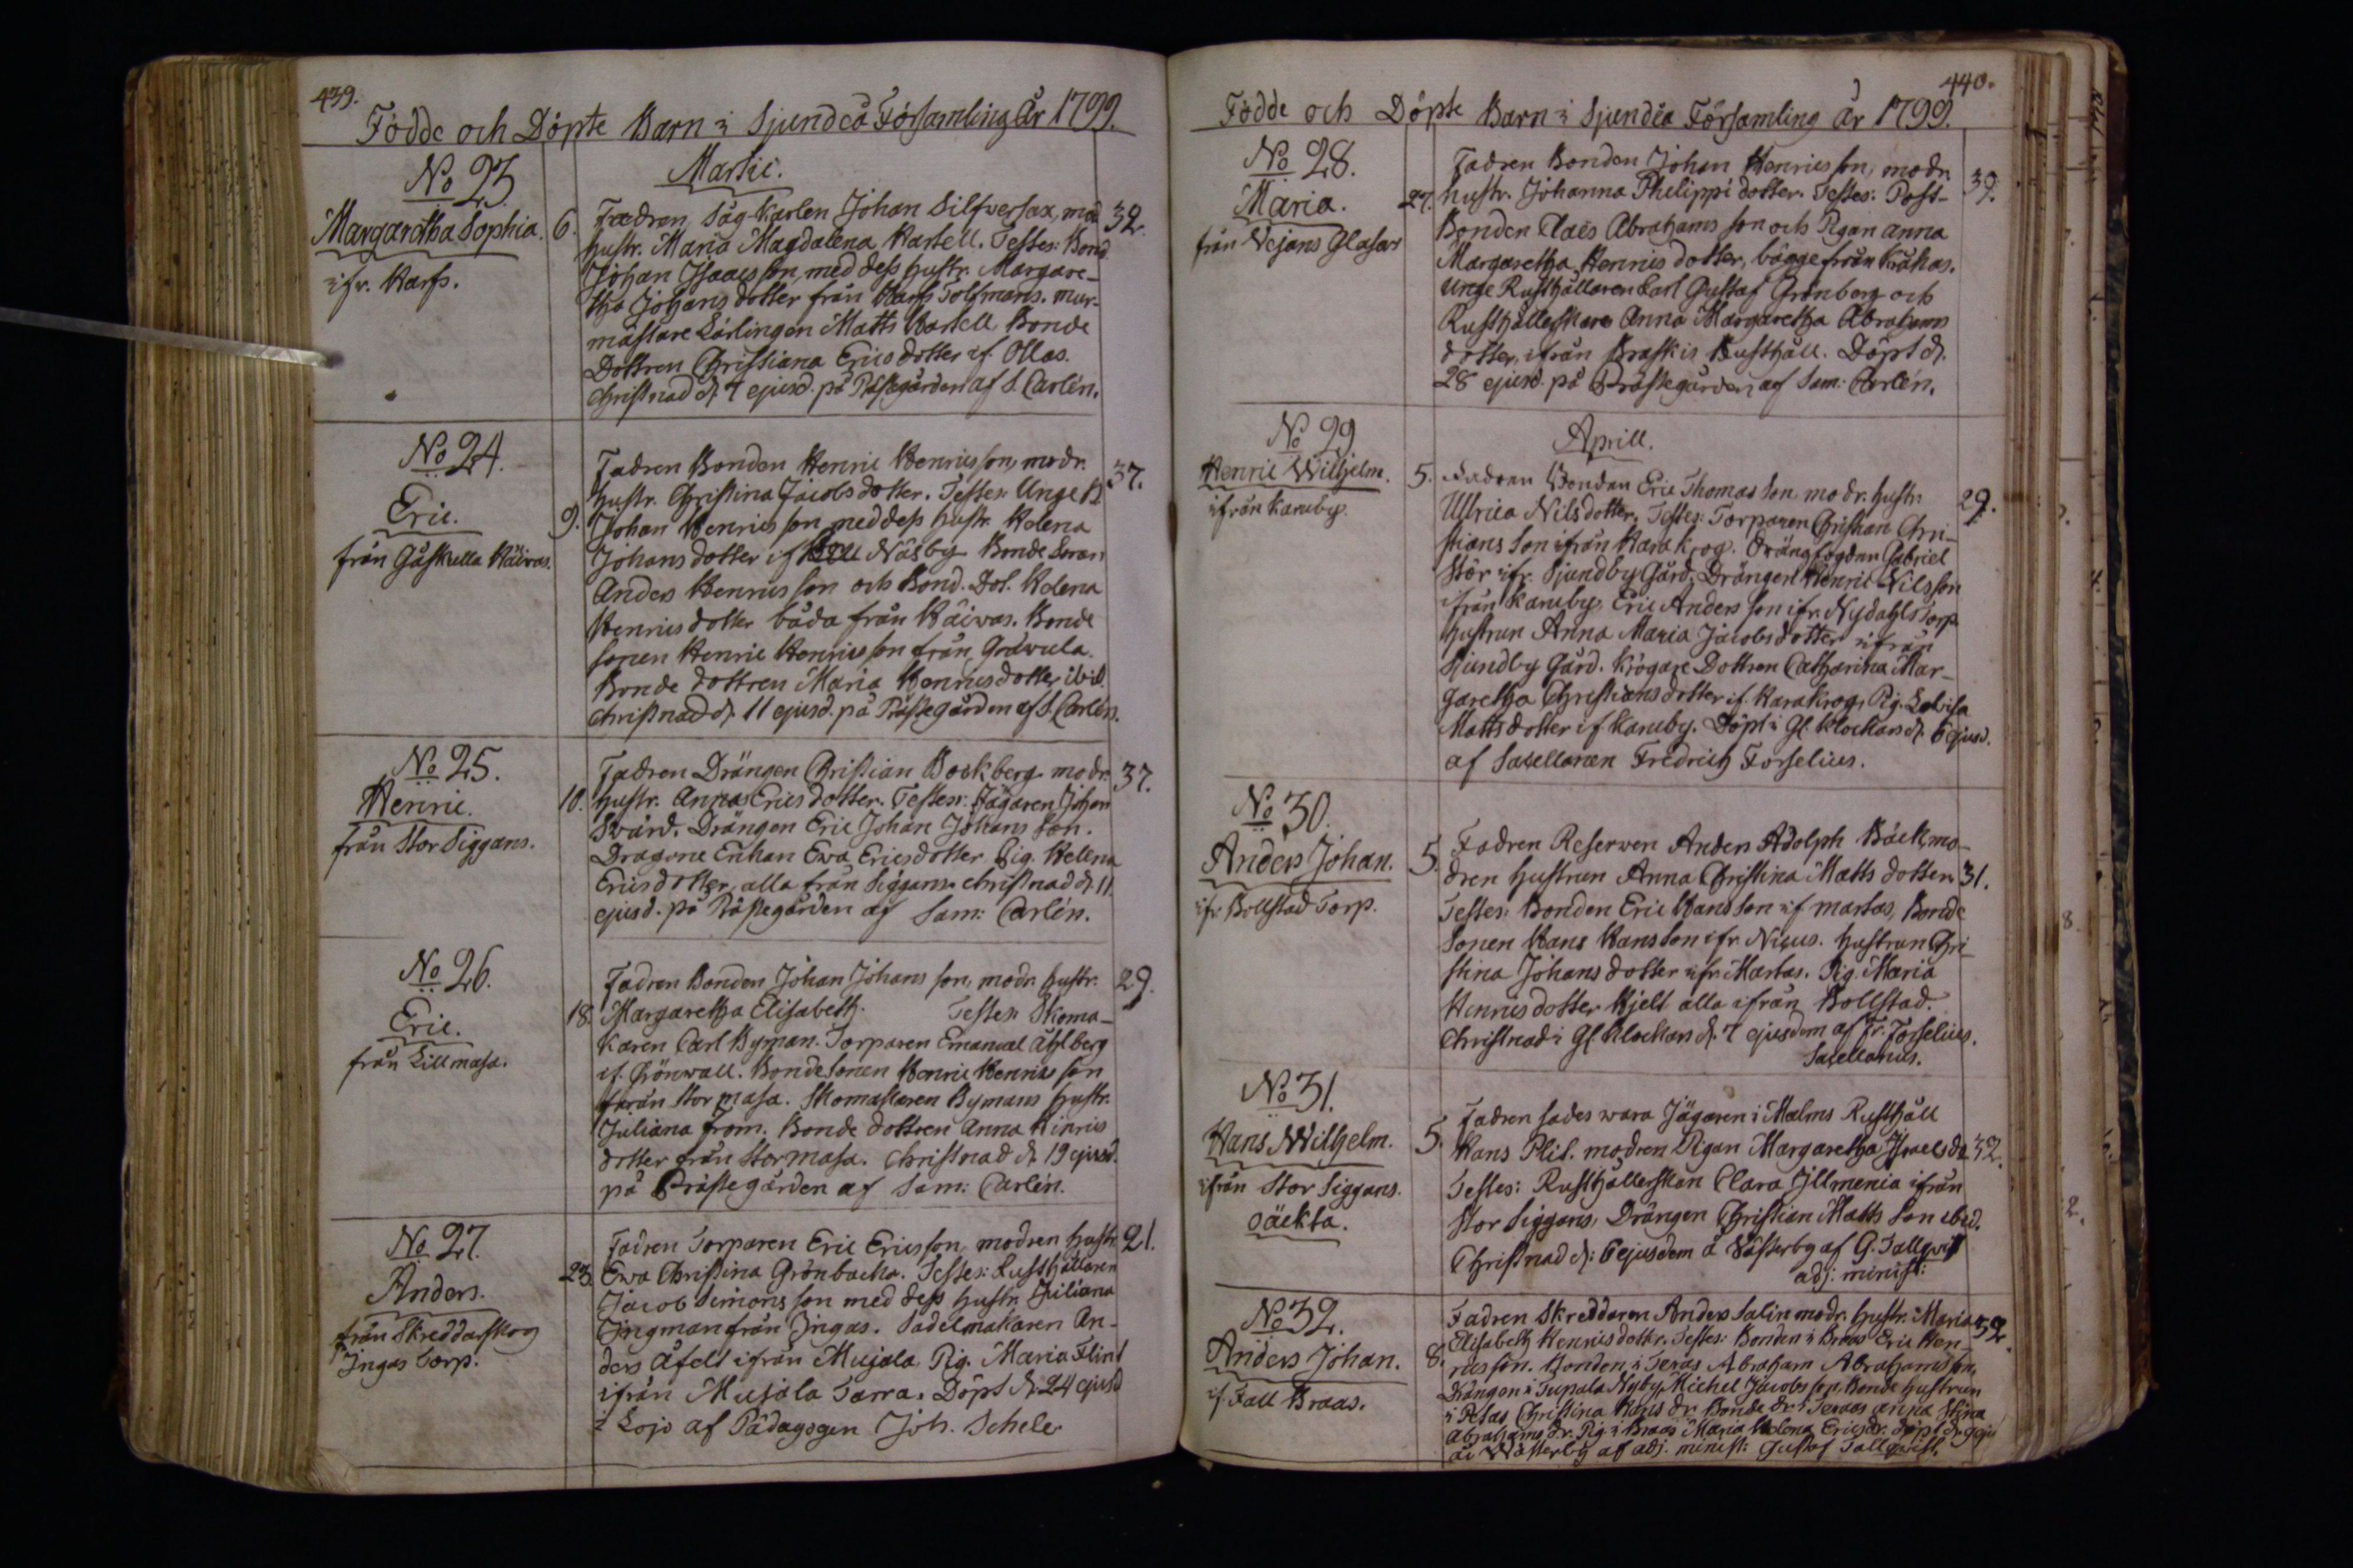 439.
Födde och Döpte Barn i Sjundeå Församling År 1799.
Martii.
No 23.
Margaretha Sophia.
ifr. Harfs.
6.
Fadren, Såg-Karlen Johan Silfversax, mod.
hustr. Maria Magdalena Hartell. Testes: Bond.
Johan Isaacs son, med dess hustr. Margare-
tha Johans dotter från Harfs Tolfmans. Mur-
mästare Lärlingen Matts Hartell, Bonde
Dottren Christiana Erics dotter if. Ollas.
Christnad d. 7 ejusd. på Prästegården af S. Carlén.
32.
No 24.
Eric.
från Gåskulla Häivas.
9.
Fadren Bonden Henric Henrics son, modr.
hustr. Christina Jacobs dotter. Testes: Unge B.
Johan Henrics son, med dess hustr. Helena
Johans dotter if Näsby. Bonde Sonen
Anders Henrics son och Bond. Dot. Helena
Henrics dotter båda från Häiwas. Bonde
sonen Henric Henrics son från Gräwula.
Bonde dottren Maria Henrics dotter ibid.
Christnad d. 11 ejusd. på Prästegården af S. Carlén.
37.
No 25.
Henric.
från Stor Siggans.
10.
Fadren Drängen Christian Bockberg modr.
hustr. Anna Erics dotter. Testes: Jägaren Johan
Swärd. Drängen Eric Johan Johans son.
Dragone Enkan Ewa Erics dotter Pig. Helena
Erics dotter, alla från Siggans. Christnad d. 11
ejusd. på Prästegården af Sam: Carlén.
37.
No 26.
Eric.
från Lillmasa.
18.
Fadren Bonden Johan Johans son, modr. hustr.
Margaretha Elisabeth. Testes: Skoma-
karen Carl Byman. Torparen Emanuel Åhlberg
if. Grönwall. Bonde Sonen Henric Henrics son
från Stor masa. Skomakaren Bymans hustr.
Juliana From. Bonde dottren Anna Hinrics
dotter från Stormasa. Christnad d. 19 ejusd.
på Prästegården af Sam: Carlén.
29.
No 27.
Anders.
från Skreddarskog
Ingas Torp.
23.
Fadren Torparen Eric Ericsson, modren hustr.
Ewa Christina Grönbacka. Testes: Rusthållaren
Jacob Simons son med dess hustr. Juliana
Ingman från Ingas. Sadelmakaren An-
ders Åfelt ifrån Mujala, Pig. Maria Flint
ifrån Mujala Tarra. Döpt d. 24 ejusd
i Lojo af Pädagogen Joh. Schele.
21.
440.
Födde och Döpte Barn i Sjundeå Församling År 1799.
No 28.
Maria.
från Wejans Glasars
27.
Fadren Bonden Johan Henrics son, modr.
hustr. Johanna Philippi dotter. Testes: Post-
Bonden Claës Abrahams son och Pigan Anna
Margaretha Henrics dotter, bägge från Kråkas.
Unge Rusthållaren Carl Gustaf Grönberg och
Rusthållerskan Anna Margaretha Abrahams
dotter, ifrån Braskis Rusthåll. Döpt d.
28 ejusd. på Prästegården af Sam: Carlén.
39.
Aprill.
No 29
Henric Wilhelm.
ifrån Karuby.
5.
Fadren Bonden Eric Thomas son, modr. hustr.
Ullrica Nils dotter. Testes: Torparen Christian Chri-
stians son ifrån Harakrog. Drängfogden Gabriel
Stör ifr. Sjundby Gård. Drängen Henric Nilsson
ifrån Karuby, Eric Anders son ifr. Nydahls Torp
hustrun Anna Maria Jacobs dotter ifrån
Sjundby Gård. Krögare Dottren Catharina Mar-
garetha Christians dotter if. Harakrog, Pig. Lovisa
Matts dotter if Karuby. Döpt i Gl. Klockars d. 6 ejusd.
af Sacellanen Fredrich Forselius.
29.
No 30.
Anders Johan.
ifr. Bollstad Torp.
5.
Fadren Reserven Anders Adolph Bäck, mo-
dren hustrun Anna Christina Matts dotter.
Testes: Bonden Eric Hans son if. Martas, Bonde
Sonen Hans Hans son ifr. Nicus. hustrun Chri-
stina Johans dotter ifr. Martas. Pig. Maria
Henrics dotter Hjelt alla ifrån Bollstad.
Christnad i Gl. Klockars d. 7 ejusdem af Fr. Forselius.
Sacellanus.
31.
No 31.
Hans Wilhelm.
ifrån Stor Siggans.
oäckta.
5.
Fadren sades wara Jägaren i Malms Rusthåll
Hans Plit. modren Pigan Margaretha Israels do.
Testes: Rusthållerskan Clara Illmenia ifrån
Stor Siggans, Drängen Christian Matts Son ibid.
Christnad d: 6 ejusdem å Västerby af G. Tallqvist
adj: minist:
32.
No 32.
Anders Johan.
if. Fall Braas.
8.
Fadren Skreddaren Anders Salin modr. hustr. Maria
Elisabeth Henrics dotter. Testes: Bonden i Braas Eric Hen-
rics son. Bonden i Teras Abraham Abrahams son,
Drängen i Tupala Nyby Michel Jacobs son, Bonde hustrun
i Petas Christina Hans dr. Bonde dr. i Teras Anna Stina
Abrahams dr. Pig. i Braas Maria Helena Erics dr. Döpt d. 9 eju
å Wästerby af adj. minist: Gustaf Tallqwist.
32.